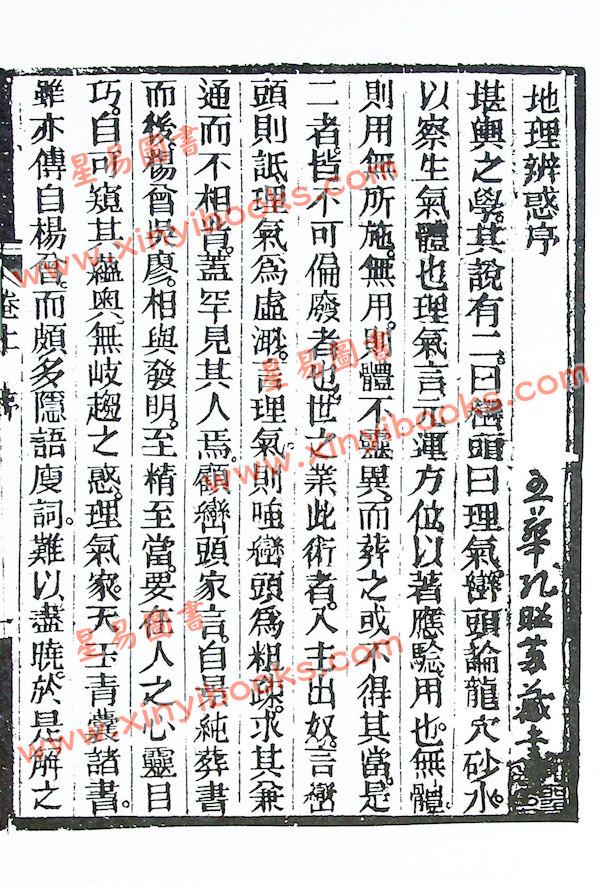 地理辨惑序
堪輿之學。其說有二。曰巒頭曰理氣。巒頭論龍穴砂水。
以察生氣。體也。理氣言元運方位以著應驗。用也。無體。
則用無所施。無用。則體不靈異。而葬之或不得其當。是
二者。皆不可偏廢者也。世之業此術者。入主出奴。言巒
頭則詆理氣爲虛渺。言理氣。則嗤巒頭爲粗跡。求其兼
通而不相背。蓋罕見其人焉。顧巒頭家言。自景純葬書
而後。楊曾吳廖。相與發明。至精至當。要在人之心靈目
巧。自可窺其蘊奧。無岐趨之惑。理氣家。天玉青囊諸書。
雖亦傳自楊曾。而頗多隱語廋詞。難以盡曉。於是解之
卷上 序
星易圖書
www.xinyibooks.com
星易圖書
www.xinyibooks.com
星易圖書
www.xinyibooks.com